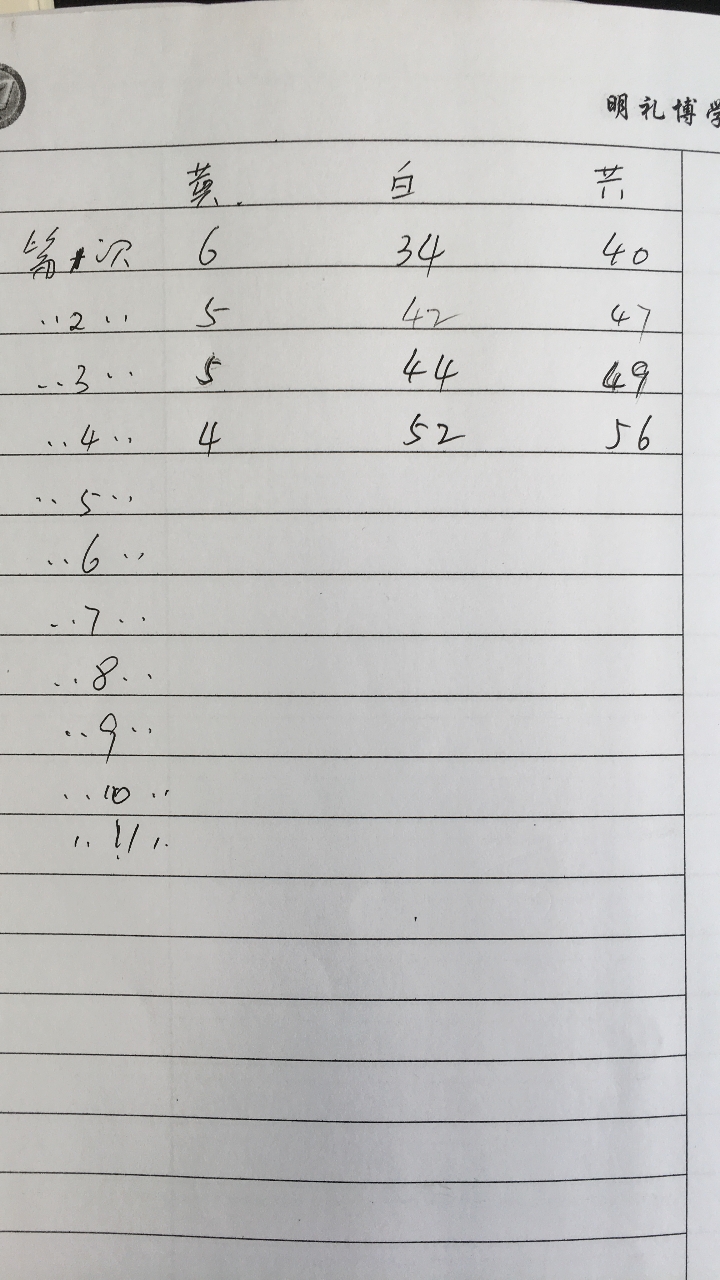 明礼博学
黄. 白 共
第1次 6 34 40
..2.. 5 42 47
..3.. 5 44 49
..4.. 4 52 56
..5..
..6..
..7..
..8..
..9..
..10..
..11..